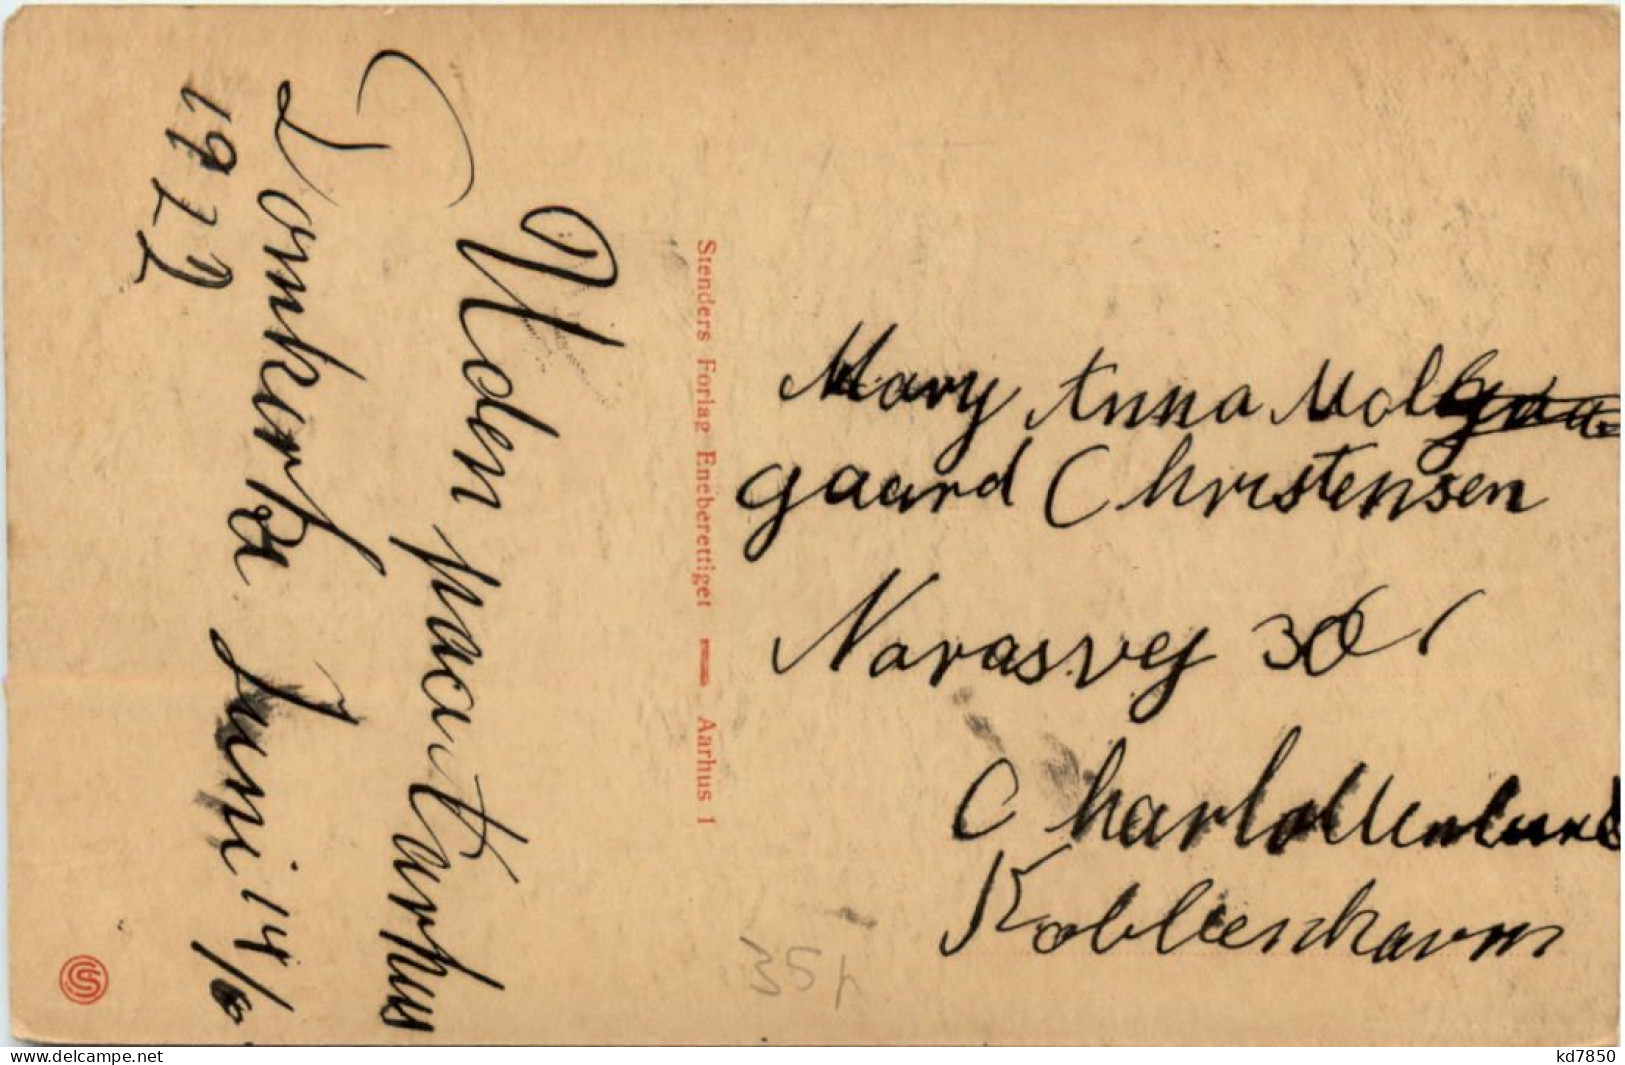 Uden paa Aarhus
Domkerke Juni 14/6
1922
Stenders Forlag Eneberettiget — Aarhus 1
Mary Anna Mol
gaard Christensen
Norasvej 30
Charlottenlund
Kobbenhavnn
354
www.delcampe.net
kd7850